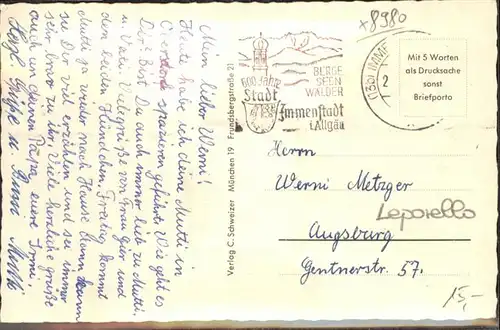 Mein lieber Werni!
Heute habe ich deine Mutti in
spazieren geführt. Wie geht es
Dir? Bist Du auch immer lieb zu Mutti
u. Vati. Viele Grüße von Frau Gur und
den beiden Hündchen. Freitag kommt
Mutti ja wieder nach Hause dann kann
sie Dir viel erzählen und sei immer
sehr brav zu ihr. Viele herzliche Grüße
auch an deinen Papa, euere Irmi,
Herzl. Grüße u. Bussi Mutti
Verlag C. Schweizer München 19 Frundsbergstraße 21
600 Jahre
Stadt
BERGE
SEEN
WÄLDER
Immenstadt
i. Allgäu
+8980
2
Mit 5 Worten
als Drucksache
sonst
Briefporto
Herrn
Werni Metzger
Leporello
Augsburg
Gentnerstr. 57.
15,-